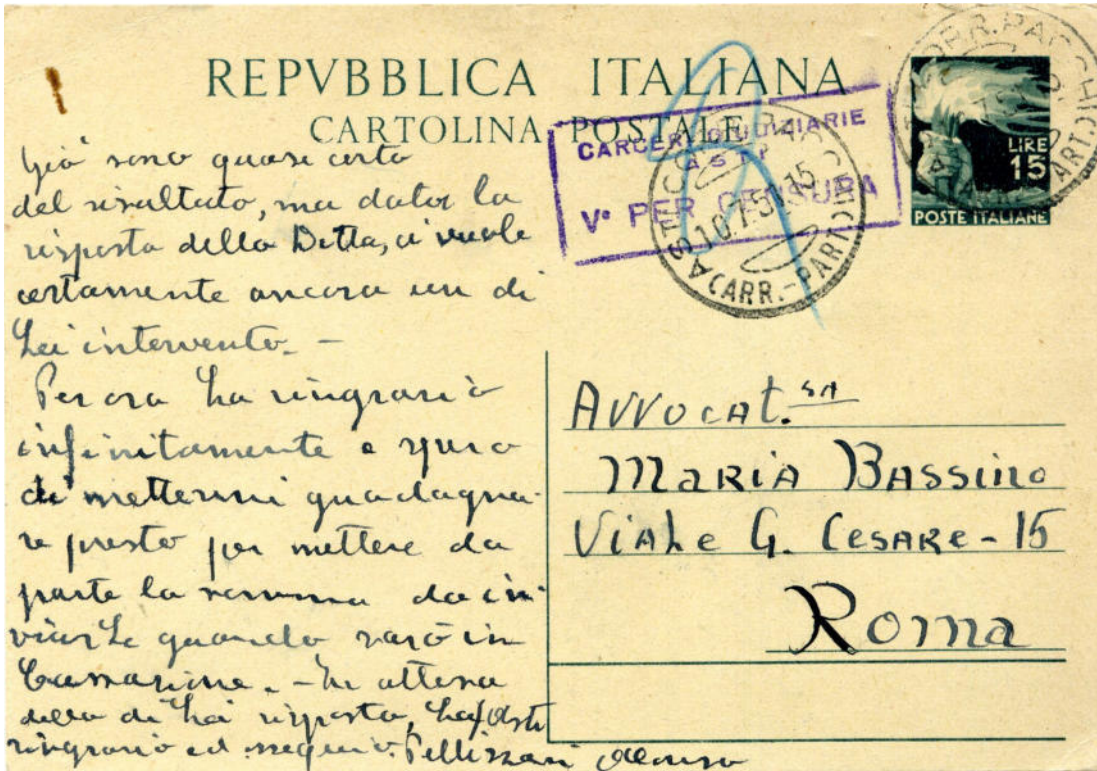 REPVBBLICA ITALIANA
CARTOLINA POSTALE
LIRE
15
POSTE ITALIANE
CARCERI GIUDIZIARIE
ASTI
Vº PER CENSURA
10.7.51.15
CARR.-PART.
Già sono quasi certo
del risultato, ma dator la
risposta della Ditta, ci vuole
certamente ancora un di
Lei intervento. -
Per ora La ringrazio
infinitamente e spero
di mettermi guadagna-
re presto per mettere da
parte la somma da in-
viarLe quando sarò in
Cassazione. - In attesa
della di Lei risposta, La
ringrazio ed ossequio. Pellizzari
Avvocat.sa
Maria Bassino
Viale G. Cesare - 15
Roma